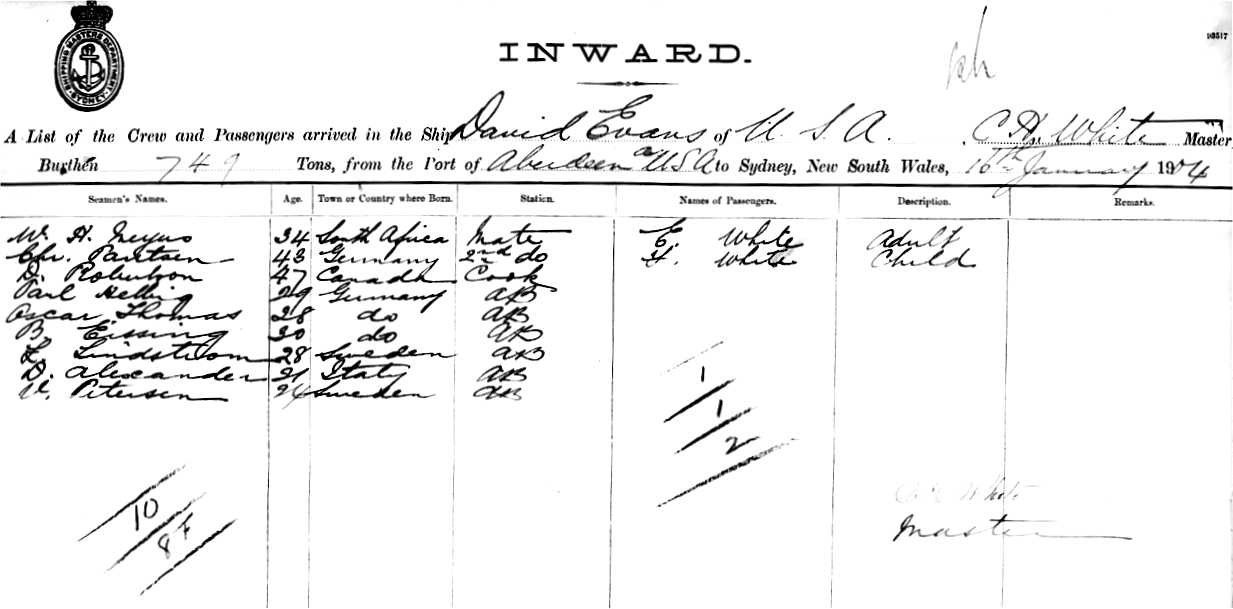 SHIPPING MASTERS DEPARTMENT SYDNEY
INWARD.
A List of the Crew and Passengers arrived in the Ship David Evans of U. S. A. C. H. White Master,
Burthen 749 Tons, from the Port of Aberdeen USA to Sydney, New South Wales, 16th January 1904
Seamen's Names. Age. Town or Country where Born. Station. Names of Passengers. Description. Remarks.
W. H. 34 South Africa Mate E. White Adult
Chr. 43 Germany 2nd do H. White Child
D. Robertson 47 Canada Cook
Carl Helbig 29 Germany AB
Oscar Thomas 28 do AB
B. Eissing 30 do AB
L. Lindstrom 28 Sweden AB
D. Alexander 21 Italy AB
V. Petersen 24 Sweden AB
1
1
2
10
8 F
White
Master